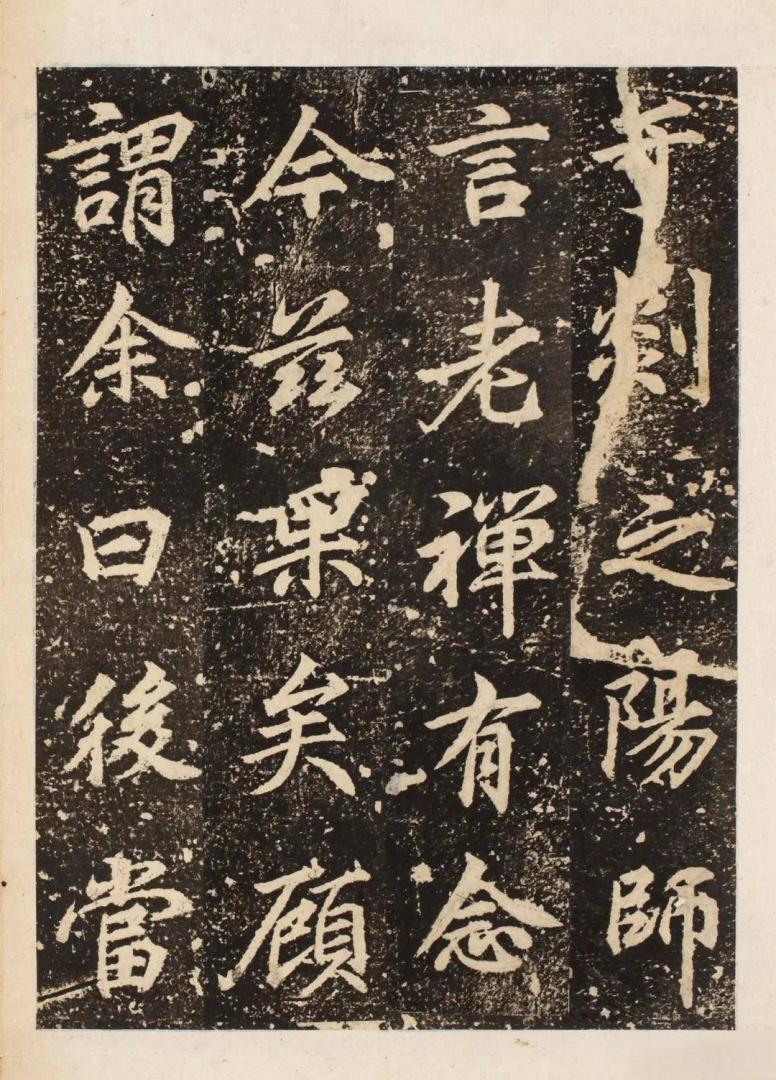 剡之陽師
言老禪有念
今兹果矣顧
謂余曰後當